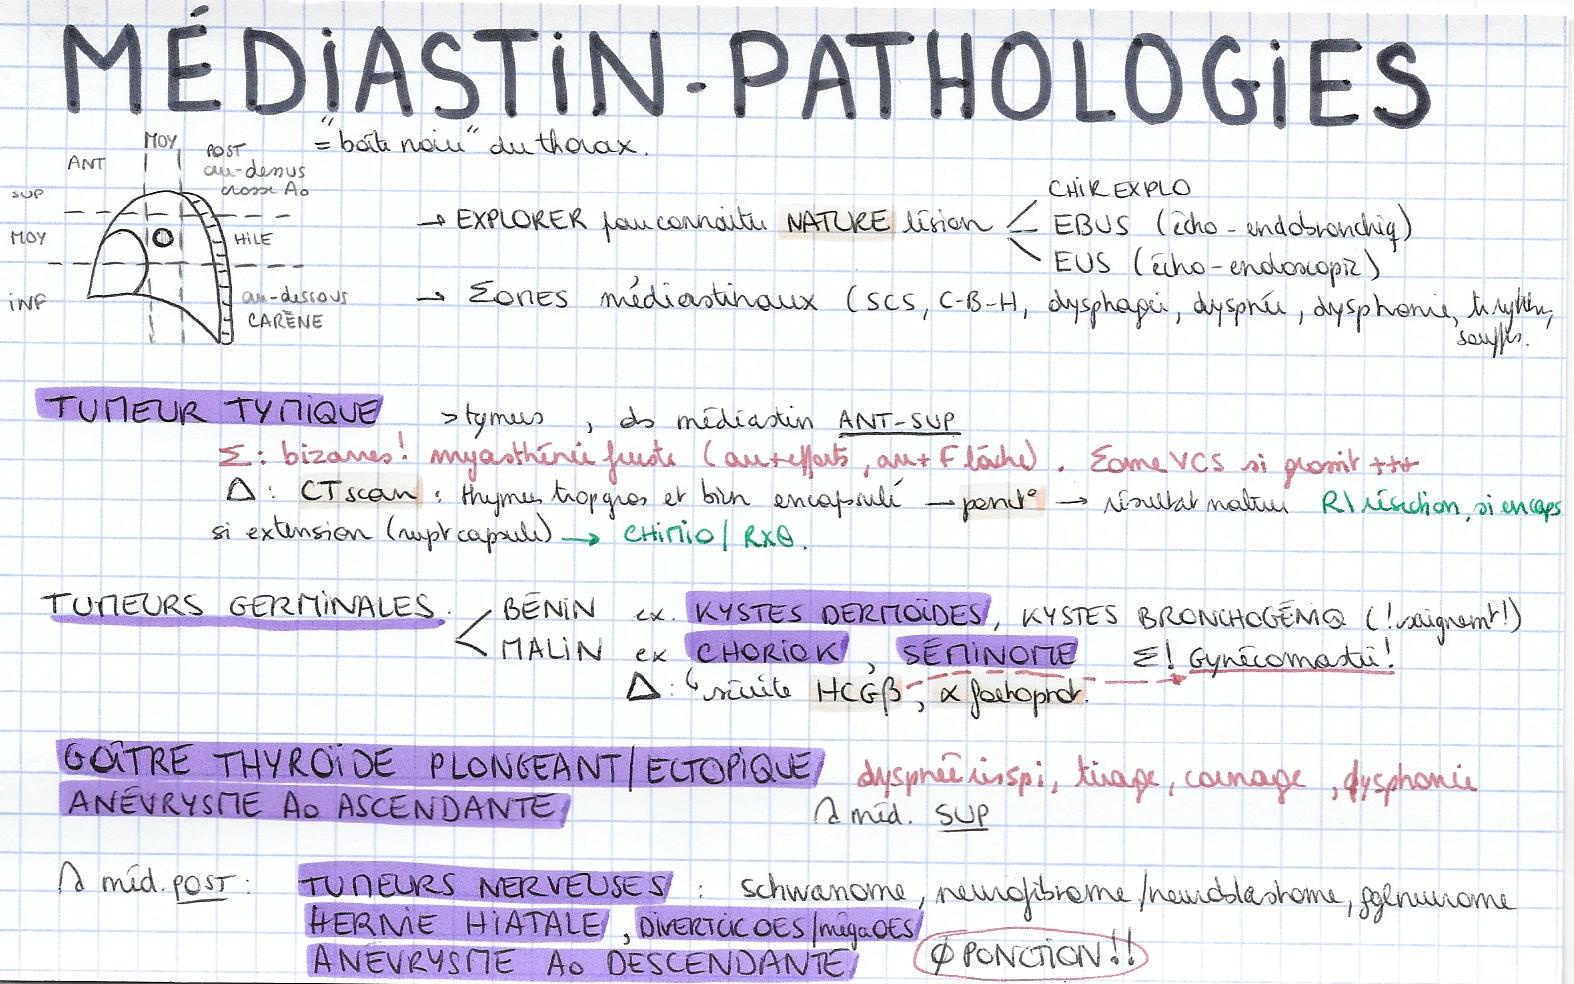 MÉDIASTIN-PATHOLOGIES
= "boîte noire" du thorax.
ANT MOY POST
au-dessus
crosse Ao
SUP
MOY HILE
INF au-dessous
CARÈNE
→ EXPLORER pour connaître NATURE lésion
CHIR EXPLO
EBUS (écho-endobronchiq)
EUS (écho-endoscopie)
→ Σomes médiastinaux (SCS, C-B-H, dysphagie, dyspnée, dysphonie,
souffs.
TUMEUR TYMIQUE > tymus, ds médiastin ANT-SUP
Σ: bizarres! myasthénie fruste (au + efforts, au + F lâche). Σome VCS si grossit +++
Δ: CT scan: thymus trop gros et bien encapsulé → ponct° → résultat nature R\ résection, si encaps
si extension (rupt capsule) → CHIMIO / RXθ.
TUMEURS GERMINALES.
BÉNIN ex. KYSTES DERMOÏDES, KYSTES BRONCHOGÉNIQ (! saignemt!)
MALIN ex CHORIOK, SÉMINOME Σ! Gynécomastie!
Δ: HCGβ, α foetoprot.
GOÎTRE THYROÏDE PLONGEANT/ECTOPIQUE dyspnée inspi, tirage, cornage, dysphonie
ANÉVRYSME Ao ASCENDANTE méd. SUP
méd. POST: TUMEURS NERVEUSES: schwanome, neurofibrome/neuroblastome, gglneurome
HERNIE HIATALE, DIVERTIC OES/mégaOES
ANÉVRYSME Ao DESCENDANTE ∅ PONCTION!!